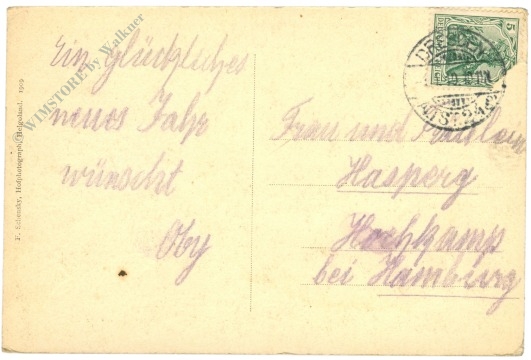 Ein glückliches
neues Jahr
wünscht
Oby
Frau und Fräulein
Hasperg
Hochkamp
bei Hamburg
DRESDEN
ALTST. 24
5
F. Schensky, Hofphotograph, Helgoland. 1909
WIMSTORE by Walkner